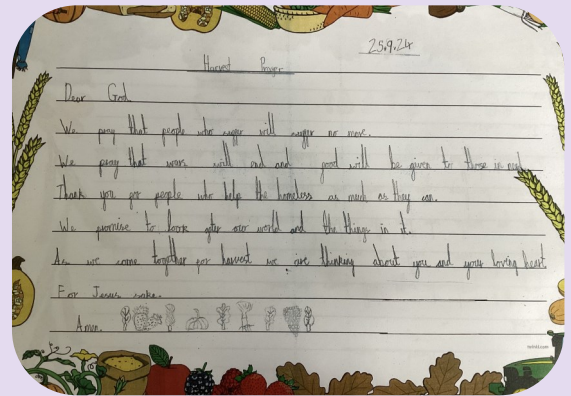 25.9.24
Harvest Prayer
Dear God
We pray that people who suffer will suffer no more.
We pray that wars will end and good will be given to those in need
Thank you for people who help the homeless as much as they can.
We promise to look after our world and the things in it.
As we come together for harvest we are thinking about you and your loving heart
For Jesus sake.
Amen.
twinkl.com